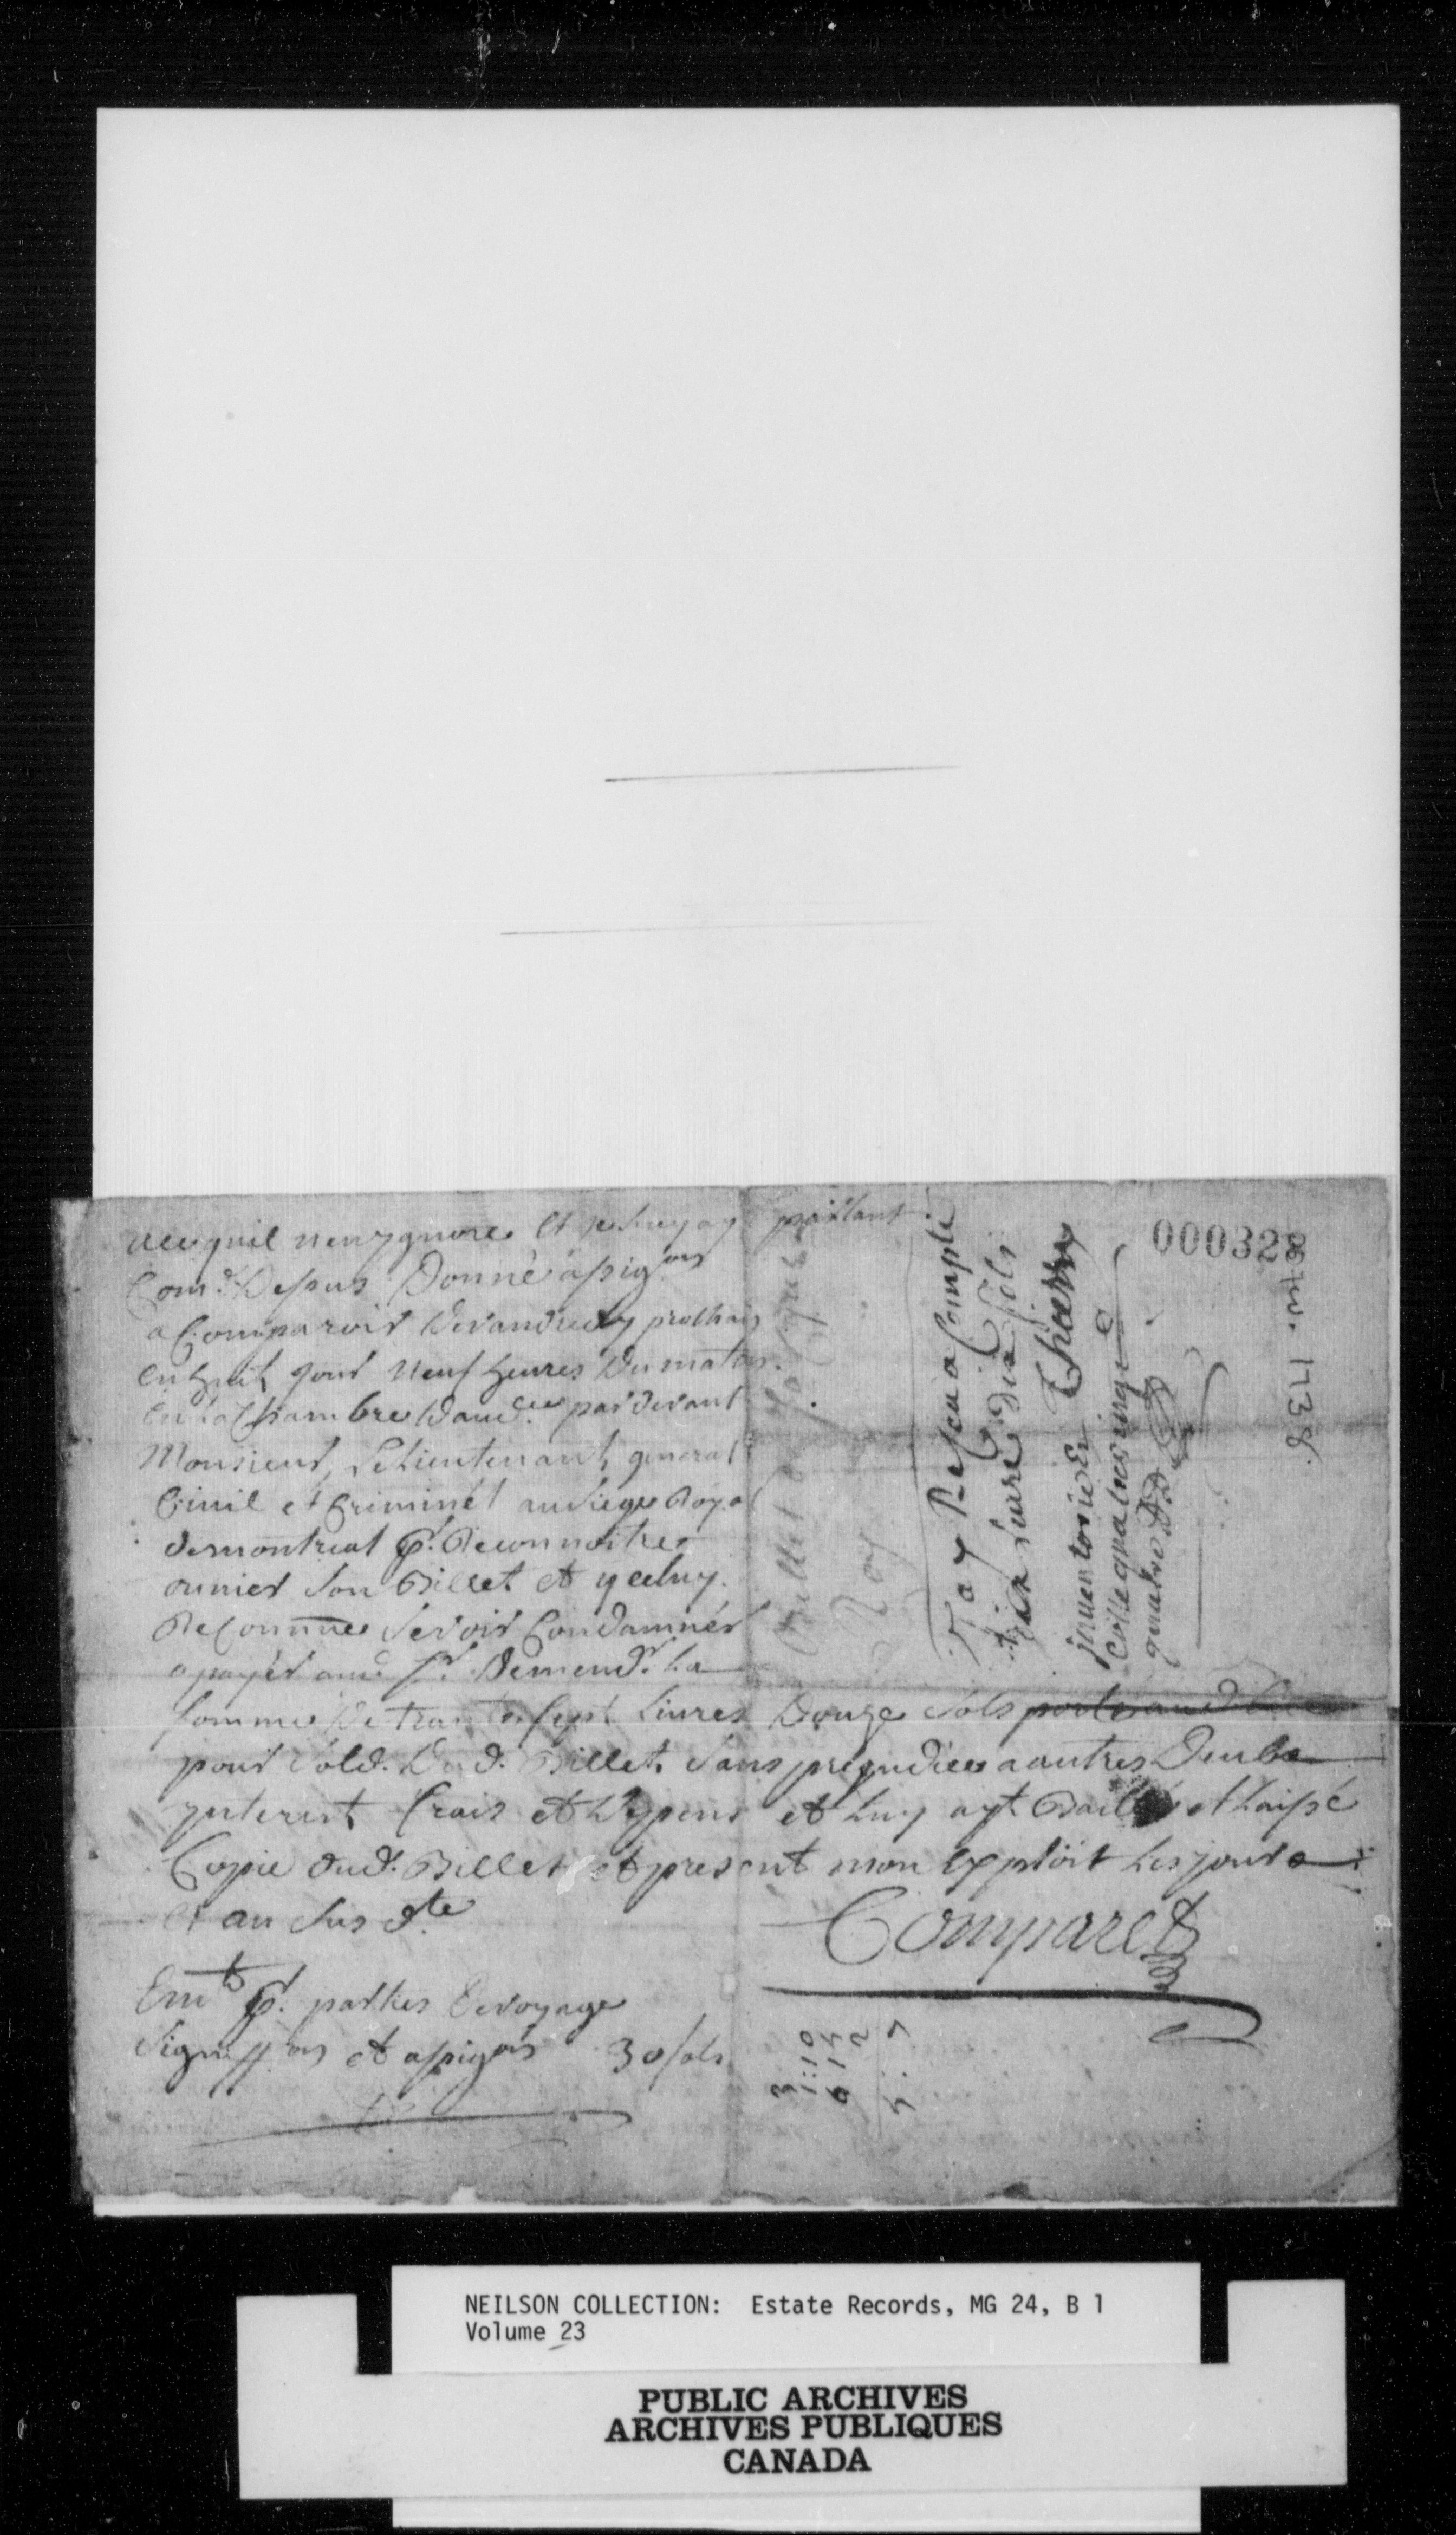 qu'il n'en ygnore et parlant
Com.^e Dessus Donné assig^on
a Comparoir De vandredy prochain
en huit jour neuf heures Du matin
en La Chambre Daud.^ce pardevant
Monsieur Le Lieutenant general
Civil et Criminel au siege Royal
de montreal p^r. Reconnoitre
ou nier son Billet et yceluy
Reconnue se voir Condamner
a payer aud. S^r. Demend^r. La
somme De trante sept Livres Douze sols
pour sold. Dud. Billet sans prejudice a autres Deub
ynterest frais et Depens et Luy ayt Baillé et Laissé
Copie dud. Billet et present mon Exploit Les jour
et an susd^te
Comparet
Em^t p^r. parties Et voyage
Signiff^on et assig^on 30 sols
3
1:10
5: 7
Billet
Roy
J ay Resu a Compte
six Livre dix sols
Thierry
jnventorié Et
Cotte quatrevingt
quatre
1738.
000328
NEILSON COLLECTION: Estate Records, MG 24, B 1
Volume 23
PUBLIC ARCHIVES
ARCHIVES PUBLIQUES
CANADA